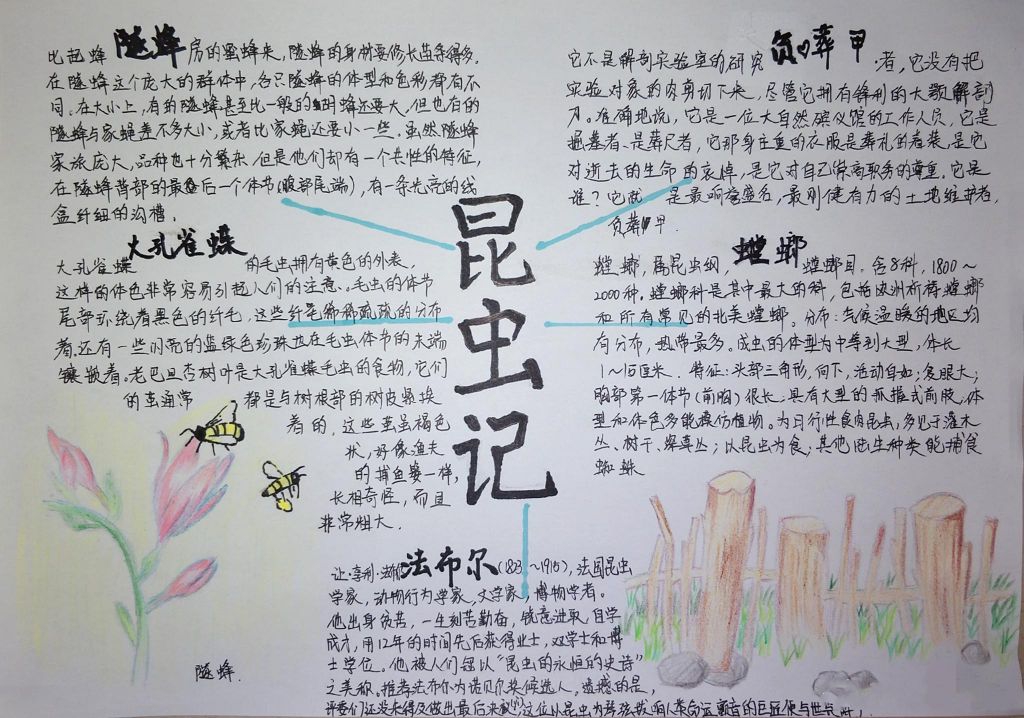 比起蜂隧蜂房的蜜蜂来，隧蜂的身材要修长苗条得多。
在隧蜂这个庞大的群体中，各只隧蜂的体型和色彩都有不
同。在大小上，有的隧蜂甚至比一般的胡蜂还要大，但也有的
隧蜂与家蝇差不多大小，或者比家蝇还要小一些。虽然隧蜂
家族庞大，品种也十分繁杂，但是他们却有一个共性的特征，
在隧蜂背部的最后一个体节（腹部尾端），有一条光亮的线
盒纤细的沟槽。
它不是解剖实验室的研究负葬甲者，它没有把
实验对象的肉剪切下来，尽管它拥有锋利的大颚解剖
刀。准确地说，它是一位大自然殡仪馆的工作人员，它是
掘墓者、是葬尸者，它那身庄重的衣服是葬礼的着装，是它
对逝去的生命的哀悼，是它对自己崇高职务的尊重。它是
谁？它就是最响当盛名，最刚健有力的土地维护者，
负葬甲.
昆虫记
大孔雀蝶
大孔雀蝶的毛虫拥有黄色的外表，
这样的体色非常容易引起人们的注意。毛虫的体节
尾部环绕着黑色的纤毛，这些纤毛稀稀疏疏的分布
着.还有一些闪亮的蓝绿色珍珠在毛虫体节的末端
镶嵌着。老巴旦杏树叶是大孔雀蝶毛虫的食物，它们
的茧通常都是与树根部的树皮紧挨
着的，这些茧呈褐色
状，好像渔夫
的捕鱼篓一样，
长相奇怪，而且
非常粗大.
螳螂，属昆虫纲，螳螂螳螂目.含8科，1800~
2000种。螳螂科是其中最大的科，包括欧洲祈祷螳螂
和所有常见的北美螳螂。分布：气候温暖的地区均
有分布，热带最多。成虫的体型为中等到大型，体长
1~15厘米.特征：头部三角形，向下，活动自如；复眼大；
胸部第一体节（前胸）很长.具有大型的抓握式前肢，体
型和体色多能模仿植物。为日行性食肉昆虫，多见于灌木
丛、树干、深草丛；以昆虫为食，其他陆生种类能捕食
蜘蛛
让·亨利·法布尔（1823~1915），法国昆虫
学家，动物行为学家，文学家，博物学者。
他出身贫苦，一生刻苦勤奋，锐意进取，自学
成才，用12年的时间先后获得业士，双学士和博
士学位。他被人们冠以“昆虫的永恒的史诗”
之美称。推荐法布尔为诺贝尔奖候选人，遗憾的是，
评委们还没来得及做出最后决议，这位以昆虫为琴弦拨响人类命运颤音的巨匠便与世长辞.
隧蜂.